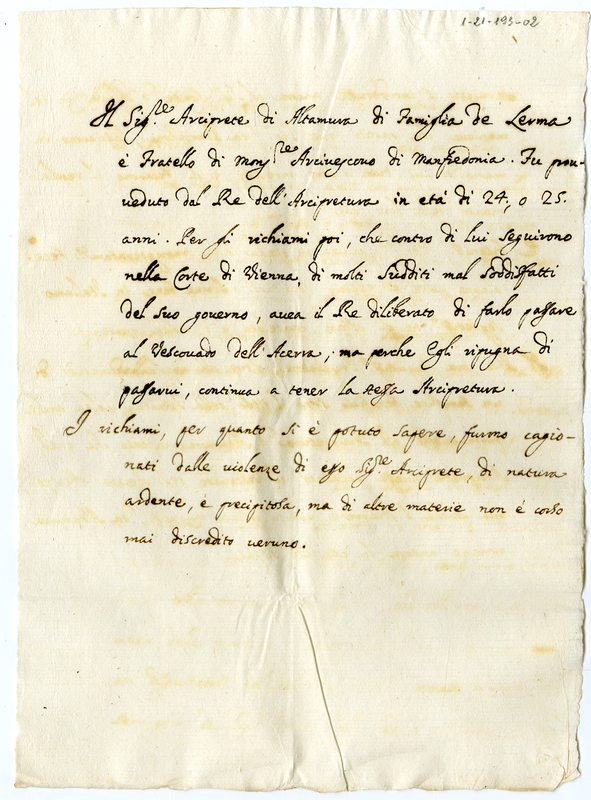 1-21-193-02
Il Sig.re Arciprete di Altamura di Famiglia de Lerma
è Fratello di Mons.re Arcivescovo di Manfredonia. Fu prou-
ueduto dal Re dell'Arcipretura in età di 24, o 25.
anni. Per gli richiami poi, che contro di Lui seguirono
nella Corte di Vienna, di molti sudditi mal soddisfatti
del suo governo, avea il Re diliberato di farlo passare
al Vescouado dell'Acerra, ma perche Egli ripugna di
passarui, continua a tener la stessa Arcipretura.
I richiami, per quanto si è potuto sapere, furno cagio-
nati dalle violenze di esso Sig.re Arciprete, di natura
ardente, e precipitosa, ma di altre materie non è corso
mai discredito veruno.